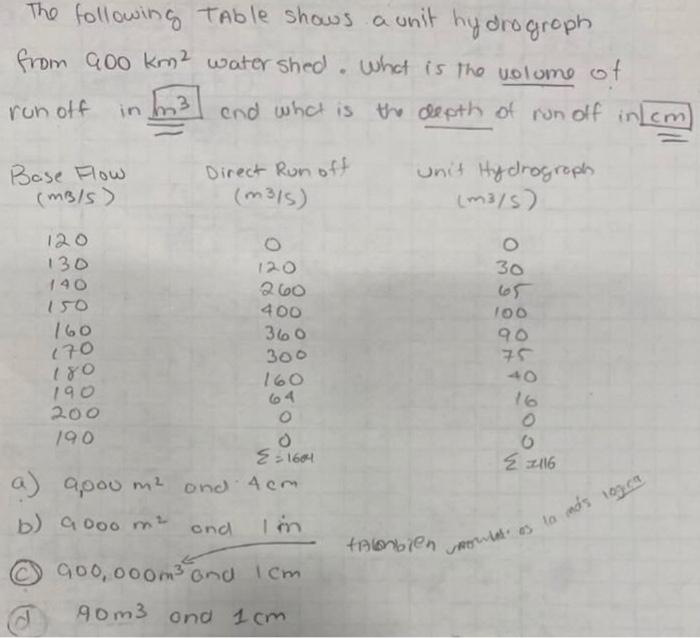 The following Table shows a unit hydrograph
from 900 km² watershed. What is the volume of
run off in m³ and what is the depth of run off in cm
Base Flow Direct Run off unit Hydrograph
(m3/s) (m3/s) (m3/s)
120 0 0
130 120 30
140 260 65
150 400 100
160 360 90
170 300 75
180 160 40
190 64 16
200 0 0
190 0 0
Σ=1664 Σ=116
a) 9,000 m² and 4cm
b) 9000 m² and 1 in
también es la más logica
c) 900,000m³ and 1cm
d 90m3 and 1cm